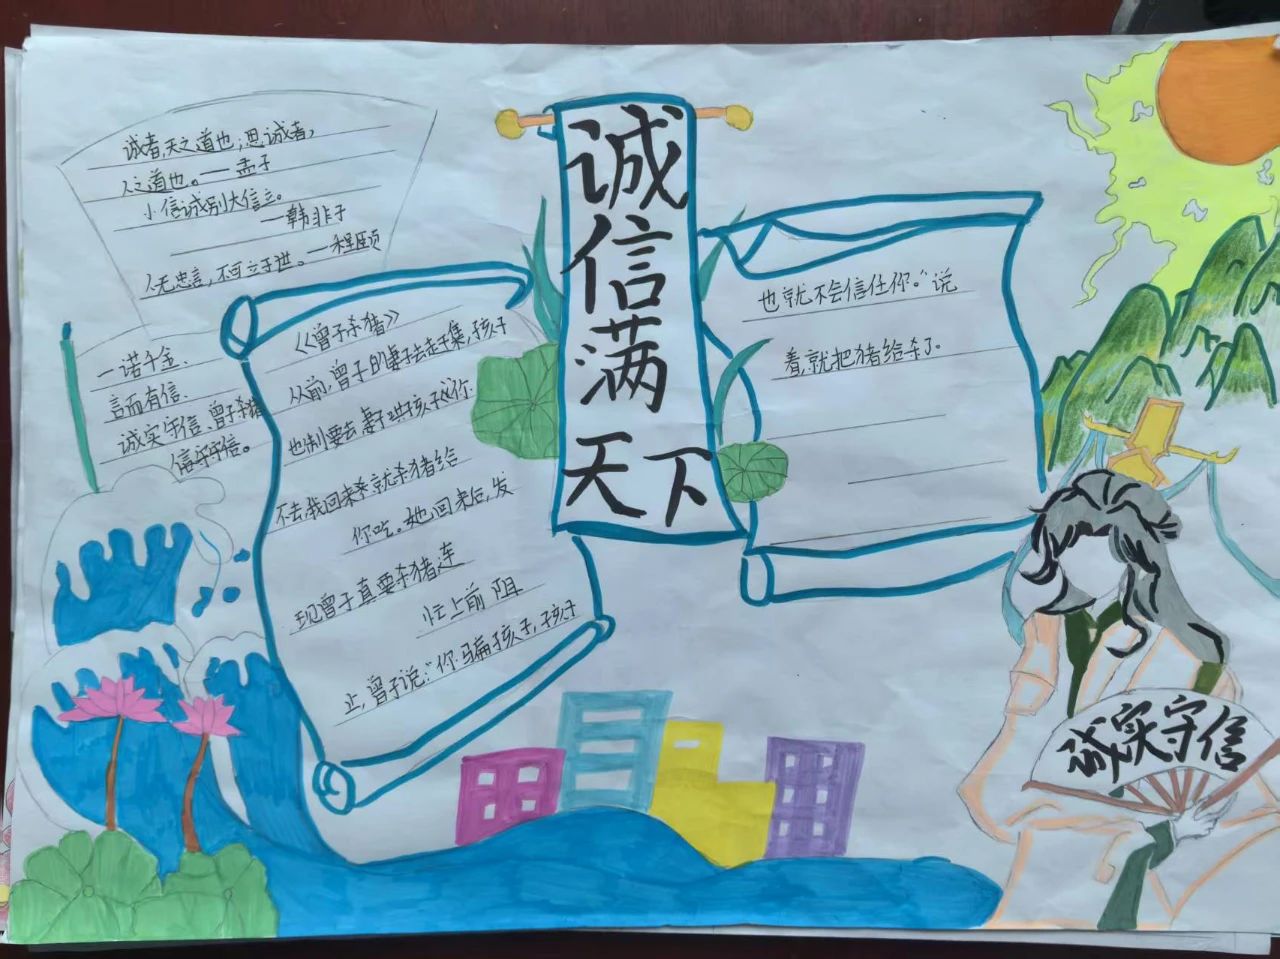 诚者,天之道也;思诚者,
人之道也。——孟子
小信诚则大信立。
——韩非子
人无忠信,不可立于世。——程颐
一诺千金、
言而有信、
诚实守信、曾子杀猪
信守
信。
《曾子杀猪》
从前,曾子的妻子去赶集,孩子
也闹要去妻子哄孩子《你
不去,我回来就杀猪给
你吃。她回来后,发
现曾子真要杀猪连
忙上前阻
止,曾子说:“你骗孩子,孩子
诚
信
满
天下
也就不会信任你。”说
着,就把猪给杀了。
诚实守信